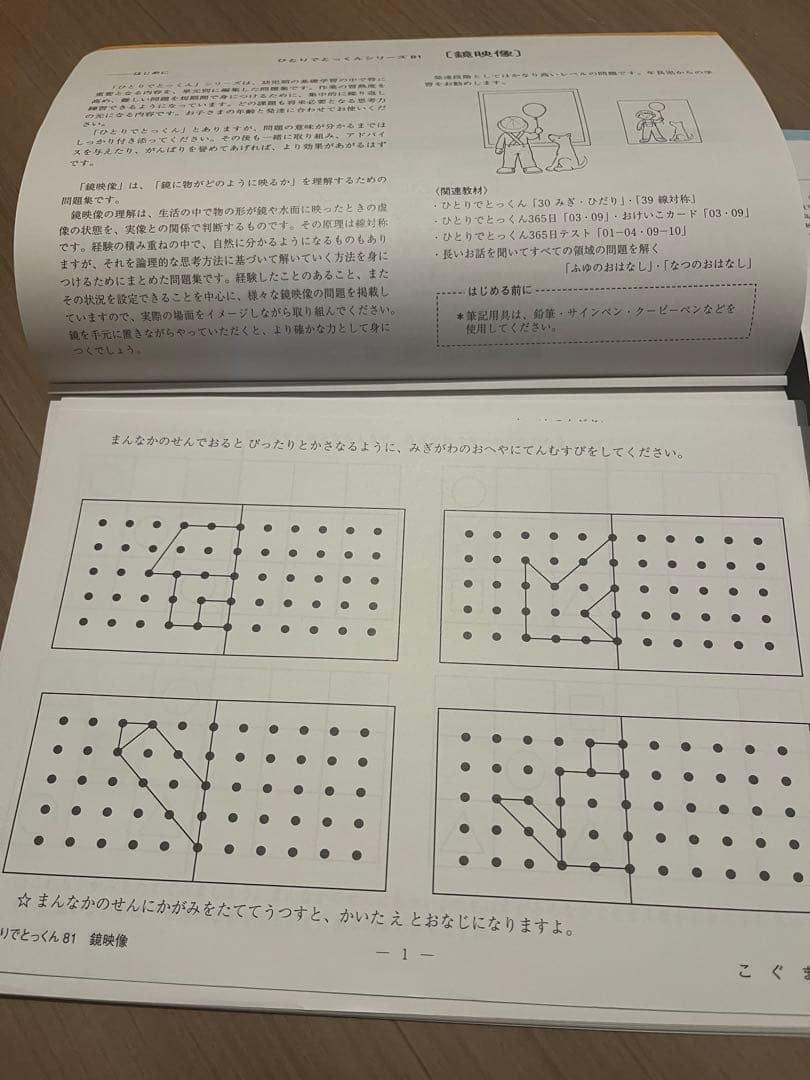 ひとりでとっくんシリーズ 81 [鏡映像]
はじめに
「ひとりでとっくん」シリーズは、幼児期の基礎学習の中で特に
重要となる内容を、単元別に編集した問題集です。作業の習熟度を
高め、難しい問題を短期間で身につけるために、集中的に繰り返し
練習できるようになっています。どの課題も将来必要となる思考力
の元になる内容です。お子さまの年齢と発達に合わせてお使いくださ
い。
「ひとりでとっくん」とありますが、問題の意味が分かるまでは
しっかり付き添ってください。その後も一緒に取り組み、アドバイ
スを与えたり、がんばりを誉めてあげれば、より効果があがるはず
です。
「鏡映像」は、「鏡に物がどのように映るか」を理解するための
問題集です。
鏡映像の理解は、生活の中で物の形が鏡や水面に映ったときの虚
像の状態を、実像との関係で判断するものです。その原理は線対称
です。経験の積み重ねの中で、自然に分かるようになるものもあり
ますが、それを論理的な思考方法に基づいて解いていく方法を身に
つけるためにまとめた問題集です。経験したことのあること、また
その状況を設定できることを中心に、様々な鏡映像の問題を掲載し
ていますので、実際の場面をイメージしながら取り組んでください。
鏡を手元に置きながらやっていただくと、より確かな力として身に
つくでしょう。
発達段階としてはかなり高いレベルの問題です。年長児からの学
習をお勧めします。
〈関連教材〉
・ひとりでとっくん「30 みぎ・ひだり」・「39 線対称」
・ひとりでとっくん365日「03・09」・おけいこカード「03・09」
・ひとりでとっくん365日テスト「01−04・09−10」
・長いお話を聞いてすべての領域の問題を解く
「ふゆのおはなし」・「なつのおはなし」
はじめる前に
＊筆記用具は、鉛筆・サインペン・クーピーペンなどを
使用してください。
まんなかのせんでおると ぴったりとかさなるように、みぎがわのおへやにてんむすびをしてください。
☆ まんなかのせんにかがみをたててうつすと、かいた え とおなじになりますよ。
りでとっくん 81 鏡映像
― 1 ―
こ ぐ ま